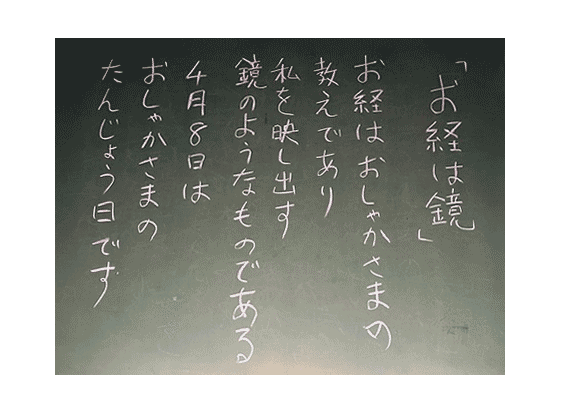 「お経は鏡」
お経はおしゃかさまの
教えであり
私を映し出す
鏡のようなものである
4月8日は
おしゃかさまの
たんじょう日です